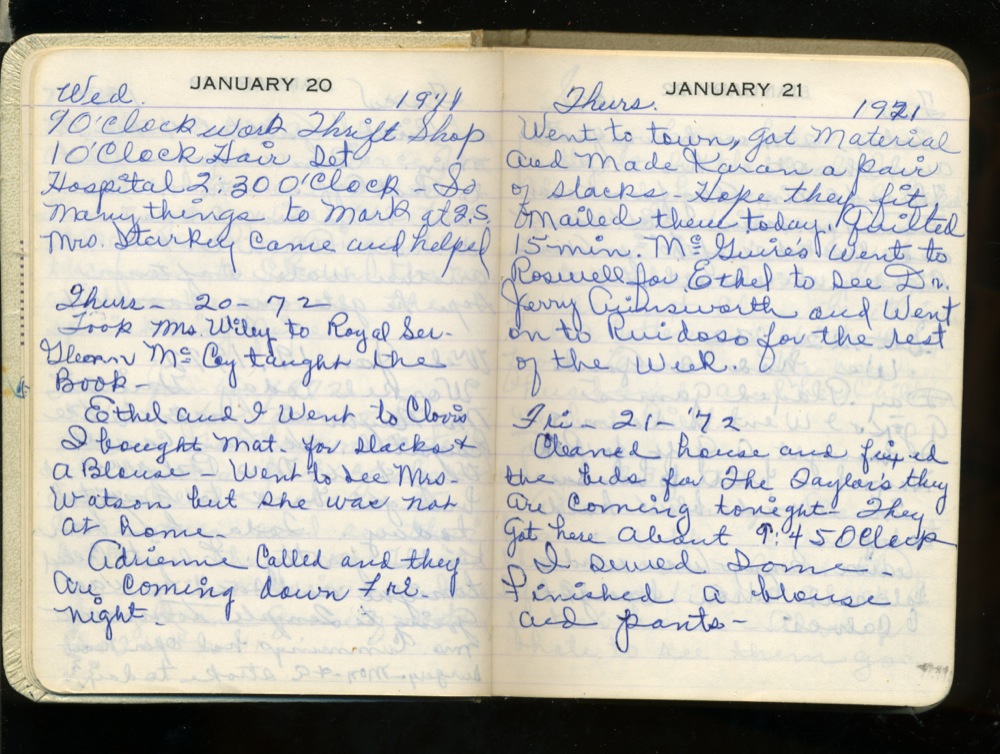 JANUARY 20
Wed. 1971
9 O'Clock work Thrift Shop
10'Clock Hair Set
Hospital 2:30 O'Clock - So
many things to Mark at
Mrs. Starkey came and helped
Thurs - 20 - 72
Took Mrs. Wiley to Royal Ser-
Mc Coy taught the
Book -
Ethel and I went to Clovis
I bought mat. for slacks &
a Blouse - Went to see Mrs.
Watson but she was not
at home -
Adrienne called and they
are coming down Fri.
night.
JANUARY 21
Thurs. 1971
Went to town, got Material
and Made Karan a pair
of slacks - Hope they fit,
mailed them today. Quilted
15 min. Mc Guire's Went to
Roswell for Ethel to see Dr.
Jerry Ainsworth and Went
on to Ruidoso for the rest
of the Week.
Fri - 21 - '72
Cleaned house and fixed
the beds for The Taylors they
are coming tonight - They
got here about 9:45 O Clock
I sewed Some -
Finished a blouse
and pants -